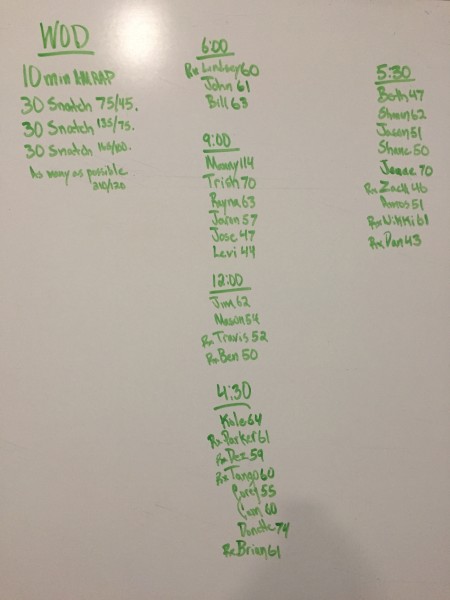 WOD
10 min AMRAP
30 Snatch 75/45.
30 Snatch 135/75.
30 Snatch 165/100.
As many as possible
210/120
6:00
Rx Lindsey 60
John 61
Bill 63
9:00
Manny 114
Trish 70
Rayna 63
Jaron 57
Jose 47
Levi 44
12:00
Jim 62
Mason 54
Rx Travis 52
Rx Ben 50
4:30
Kale 64
Rx Parker 61
Rx Dez 59
Rx Tango 60
Corey 55
Cam 60
Danette 74
Rx Brian 61
5:30
Beth 47
Shaun 62
Jason 51
Shane 50
70
Rx Zach 46
Amos 51
Rx Nikki 61
Rx Dan 43